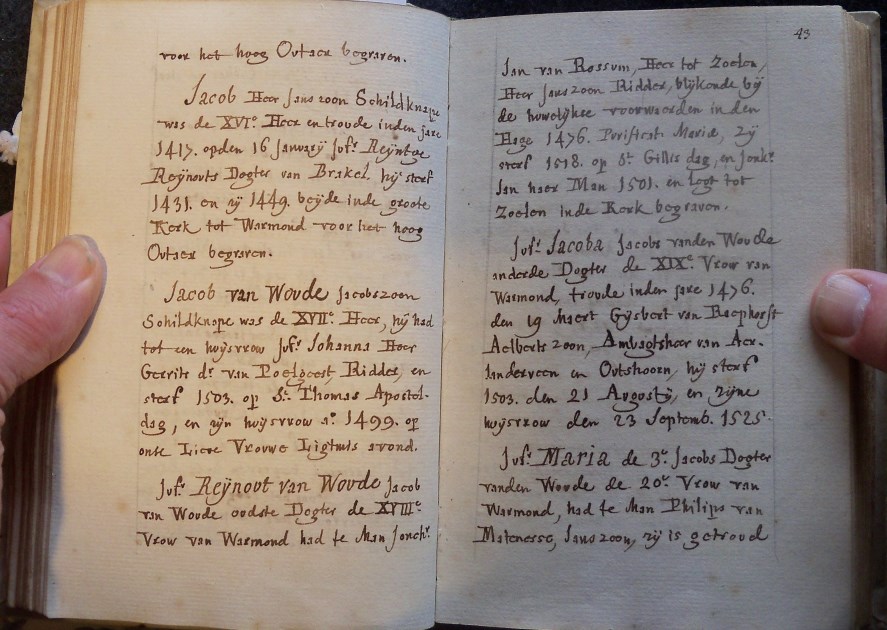 voor het hoog Outaer begraven.
Jacob Heer Jans zoon Schildknape
was de XVIe. Heer en troude inden jare
1417. opden 16 Januarÿ Jufr. Reÿntge
Reÿnouts Dogter van Brakel. hÿ sterf
1431. en zÿ 1449. beÿde inde groote
Kerk tot Warmond voor het hoog
Outaer begraven.
Jacob van Woude Jacobszoon
Schildknape was de XVIIe. Heer, hÿ had
tot een huÿsvrow Jufr. Johanna Heer
Gerrits dr. van Poelgeest, Ridder, en
sterf 1503. op St. Thomas Apostol-
dag, en zÿn huÿsvrow ao. 1499. op
onse Lieve Vrouwe Ligtmis avond.
Jufr. Reÿnout van Woude Jacob
van Woude oudste Dogter de XVIIIe.
Vrow van Warmond had te Man Jonchr.
43
Jan van Rossum, Heer tot Zoelen,
Heer Jans zoon Ridder, blÿkende bÿ
de huwelÿkse voorwaerden in den
Hage 1476. Purificat. Mariæ, zÿ
sterf 1518. op St. Gillis dag, en Jonkr.
Jan haer Man 1501. en legt tot
Zoelen inde Kerk begraven.
Jufr. Jacoba Jacobs vanden Woude
anderde Dogter de XIXe. Vrow van
Warmond, troude inden jare 1476.
den 19 Maert Gÿsbert van Raephorst
Aelberts zoon, Ambagtsheer van Aer-
landerveen en Outshoorn, hÿ sterf
1503. den 21 Augustÿ, en zÿne
huÿsvrow den 23 Septemb. 1525.
Jufr. Maria de 3e. Jacobs Dogter
vanden Woude de 20e. Vrow van
Warmond, had te Man Philips van
Matenesse, Jans zoon, zÿ is getroud